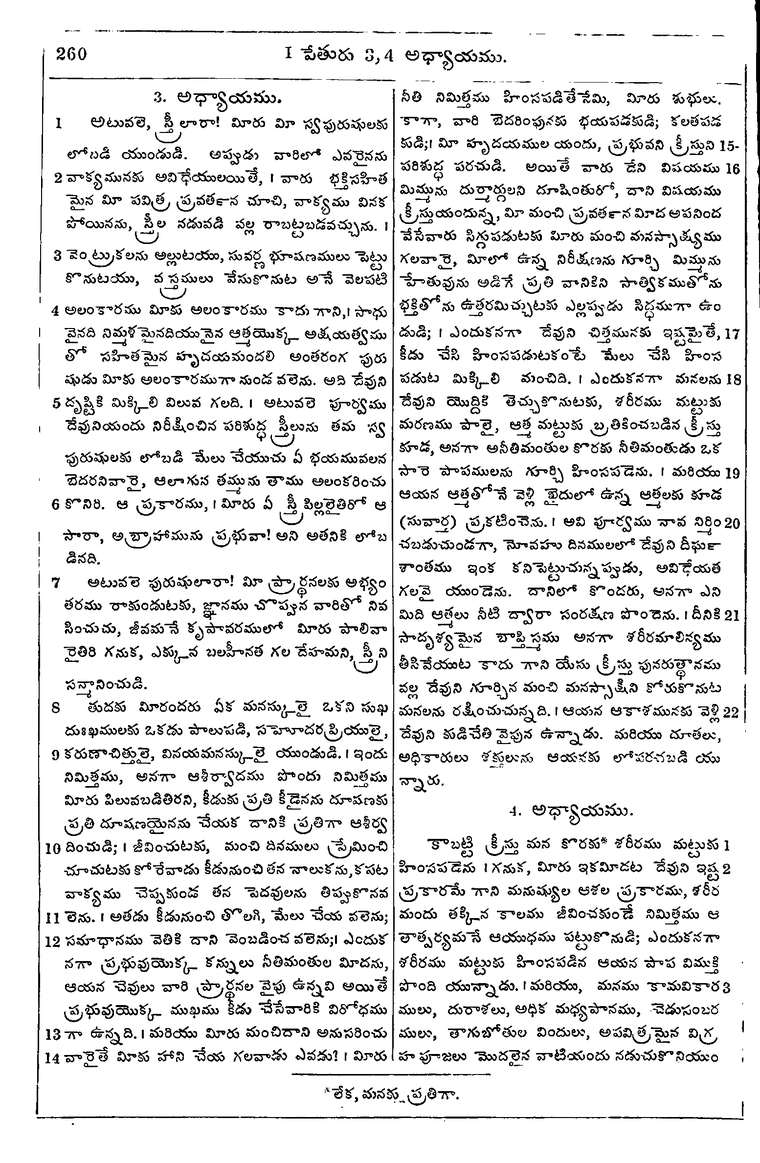 260
I పేతురు 3,4 అధ్యాయము.
3. అధ్యాయము.
1 అటువలె, స్త్రీలారా! మీరు మీ స్వపురుషులకు
లోబడి యుండుడి. అప్పుడు వారిలో ఎవరైనను
2 వాక్యమునకు అవిధేయులయితే, । వారు భక్తిసహిత
మైన మీ పవిత్ర ప్రవర్తకాన చూచి, వాక్యము వినక
పోయినను, స్త్రీల నడువడి వల్ల రాబట్టబడవచ్చును. ।
3 వెంట్రుకలను అల్లుటయు, సువర్ణ భూషణములు పెట్టు
కొనుటయు, వస్త్రములు వేసుకొనుట అనే వెలపటి
4 అలంకారము మీకు అలంకారము కాదు గాని,। సాధు
వైనది నిమ్మళమైనదియునైన ఆత్మయొక్క అక్షయత్వము
తో సహితమైన హృదయమందలి అంతరంగ పురు
షుడు మీకు అలంకారముగా నుండ వలెను. అది దేవుని
5 దృష్టికి మిక్కిలి విలువ గలది. । అటువలె పూర్వము
దేవునియందు నిరీక్షించిన పరిశుద్ధ స్త్రీలును తమ స్వ
పురుషులకు లోబడి మేలు చేయుచు ఏ భయమువలన
బెదరనివారై, ఆలాగున తమ్మును తాము అలంకరించు
6 కొనిరి. ఆ ప్రకారము, । మీరు ఏ స్త్రీ పిల్లలైతిరో ఆ
సారా, అబ్రాహామును ప్రభువా! అని అతనికి లోబ
డినది.
7 అటువలె పురుషులారా! మీ ప్రార్థనలకు అభ్యం
తరము రాకుండుటకు, జ్ఞానము చొప్పున వారితో నివ
సించుచు, జీవమనే కృపావరములో మీరు పాలివా
రైతిరి గనుక, ఎక్కున బలహీనత గల దేహమని, స్త్రీని
సన్మానించుడి.
8 తుదకు మీరందరు ఏక మనస్కులై ఒకని సుఖ
దుఃఖములకు ఒకడు పాలుపడి, సహోదర ప్రియులై,
9 కరుణాచిత్తులై, వినయమనస్కులై యుండుడి. । ఇందు
నిమిత్తము, అనగా ఆశీర్వాదము పొందు నిమిత్తము
మీరు పిలువబడితిరని, కీడుకు ప్రతి కీడైనను దూషణకు
ప్రతి దూషణయైనను చేయక దానికి ప్రతిగా ఆశీర్వ
10 దించుడి; । జీవించుటకు, మంచి దినములు ప్రేమించి
చూచుటకు కోరేవాడు కీడునుంచి తన నాలుకను, కపట
వాక్యము చెప్పకుండ తన పెదవులను తిప్పుకొనవ
11 లెను. । అతడు కీడునుంచి తొలగి, మేలు చేయ వలెను;
12 సమాధానము వెతికి దాని వెంబడించ వలెను;। ఎందుక
నగా ప్రభువుయొక్క కన్నులు నీతిమంతుల మీదను,
ఆయన చెవులు వారి ప్రార్థనల వైపు ఉన్నవి అయితే
ప్రభువుయొక్క ముఖము కీడు చేసేవారికి విరోధము
13 గా ఉన్నది. । మరియు మీరు మంచిదాని అనుసరించు
14 వారైతే మీకు హాని చేయ గలవాడు ఎవడు? । మీరు
నీతి నిమిత్తము హింసపడితేనేమి, మీరు శుభులు.
కాగా, వారి బెదరింపునకు భయపడకుడి; కలతపడ
కుడి;। మీ హృదయముల యందు, ప్రభువని క్రీస్తుని 15-
పరిశుద్ధ పరచుడి. అయితే వారు దేని విషయము 16
మిమ్మును దుర్మార్గులని దూషింతురో, దాని విషయము
క్రీస్తుయందున్న, మీ మంచి ప్రవర్తకాన మీద అపనింద
వేసేవారు సిగ్గుపడుటకు మీరు మంచి మనస్సాక్ష్యము
గలవారై, మీలో ఉన్న నిరీక్షణను గూర్చి మిమ్మును
హేతువును అడిగే ప్రతి వానికిని సాత్వికముతోను
భక్తితోను ఉత్తరమిచ్చుటకు ఎల్లప్పుడు సిద్ధముగా ఉం
డుడి; । ఎందుకనగా దేవుని చిత్తమునకు ఇష్టమైతే, 17
కీడు చేసి హింసపడుటకంటే మేలు చేసి హింస
పడుట మిక్కిలి మంచిది. । ఎందుకనగా మనలను 18
దేవుని యొద్దికి తెచ్చుకొనుటకు, శరీరము మట్టుకు
మరణము పాలై, ఆత్మ మట్టుకు బ్రతికించబడిన క్రీస్తు
కూడ, అనగా అనీతిమంతుల కొరకు నీతిమంతుడు ఒక
సారె పాపములను గూర్చి హింసపడెను. । మరియు 19
ఆయన ఆత్మతోనే వెళ్లి ఖైదులో ఉన్న ఆత్మలకు కూడ
(సువార్త) ప్రకటించెను. । అవి పూర్వము నావ నిర్మిం 20
చబడుచుండగా, నోవహు దినములలో దేవుని దీర్ఘ
శాంతము ఇంక కనిపెట్టుచున్నప్పుడు, అవిధేయత
గలవై యుండెను. దానిలో కొందరు, అనగా ఎని
మిది ఆత్మలు నీటి ద్వారా సంరక్షణ పొందెను. । దీనికి 21
సాదృశ్యమైన బాప్తిస్మము అనగా శరీరమాలిన్యము
తీసివేయుట కాదు గాని యేసు క్రీస్తు పునరుత్థానము
వల్ల దేవుని గూర్చిన మంచి మనస్సాక్షిని కోరుకొనుట
మనలను రక్షించుచున్నది. । ఆయన ఆకాశమునకు వెళ్లి 22
దేవుని కుడిచేతి వైపున ఉన్నాడు. మరియు దూతలు,
అధికారులు శక్తులును ఆయనకు లోపరచబడి యు
న్నారు.
4. అధ్యాయము.
కాబట్టి క్రీస్తు మన కొరకు* శరీరము మట్టుకు 1
హింసపడెను । గనుక, మీరు ఇకమీదట దేవుని ఇష్ట 2
ప్రకారమే గాని మనుష్యుల ఆశల ప్రకారము, శరీర
మందు తక్కిన కాలము జీవించకుండే నిమిత్తము ఆ
తాత్పర్యమనే ఆయుధము పట్టుకొనుడి; ఎందుకనగా
శరీరము మట్టుకు హింసపడిన ఆయన పాప విముక్తి
పొంది యున్నాడు. । మరియు, మనము కామవికార 3
ములు, దురాశలు, అధిక మద్యపానము, చెడుసంబర
ములు, తాగుబోతుల విందులు, అపవిత్రమైన విగ్ర
హ పూజలు మొదలైన వాటియందు నడుచుకొనియుం
*లేక, మనకు ప్రతిగా.